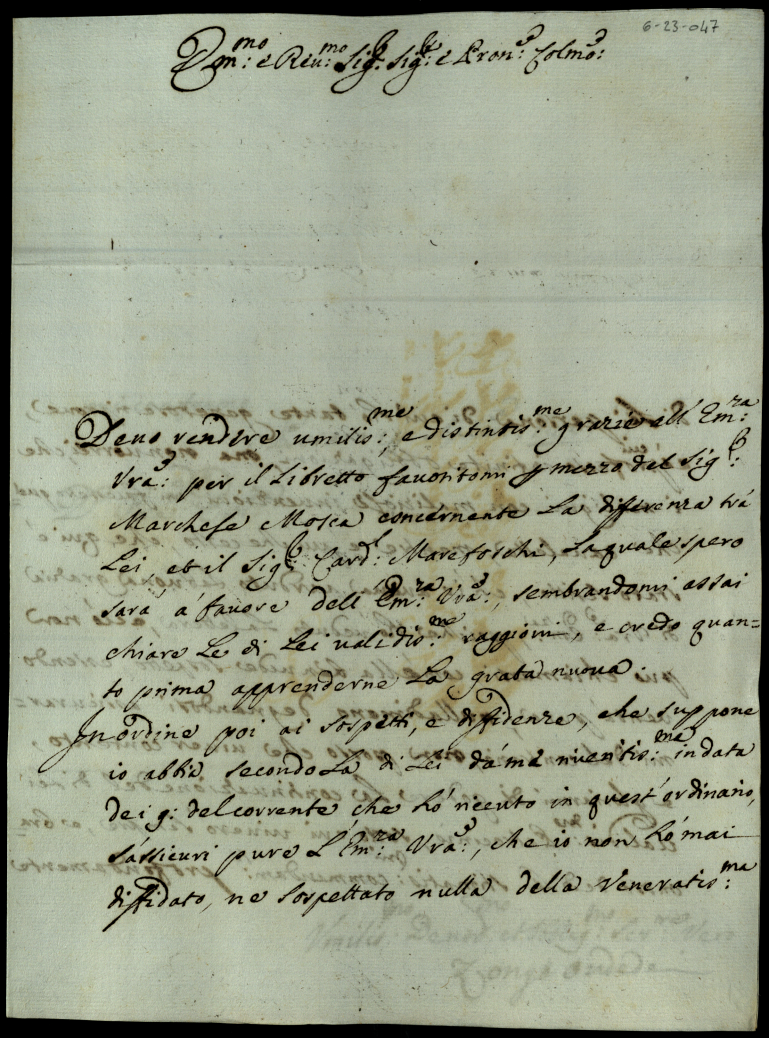 6-23-047
Em:mo e Reu:mo Sig:r Sig:r e Pron:e Colmo:
Deuo rendere umilis:me, e distintis:me grazie all' Em:za
Vra: per il Libretto fauoritomi per mezzo del Sig:r
Marchese Mosca concernente La differenza trá
Lei, et il Sig:r Card:l Marefoschi, La quale spero
sará á fauore dell' Em:za Vra:, sembrandomi assai
chiare Le di Lei ualidis:me raggioni, e credo quan=
to prima apprenderne La grata nuoua.
In ordine poi ai sospetti, e diffidenze, che suppone
io abbia secondo La di Lei dá me riueritis:ma in data
dei 9: del corrente che hó riceuto in quest' ordinario,
s'assicuri pure L' Em:za Vra:, che io non hó mai
diffidato, ne sospettato nulla della Veneratis:ma